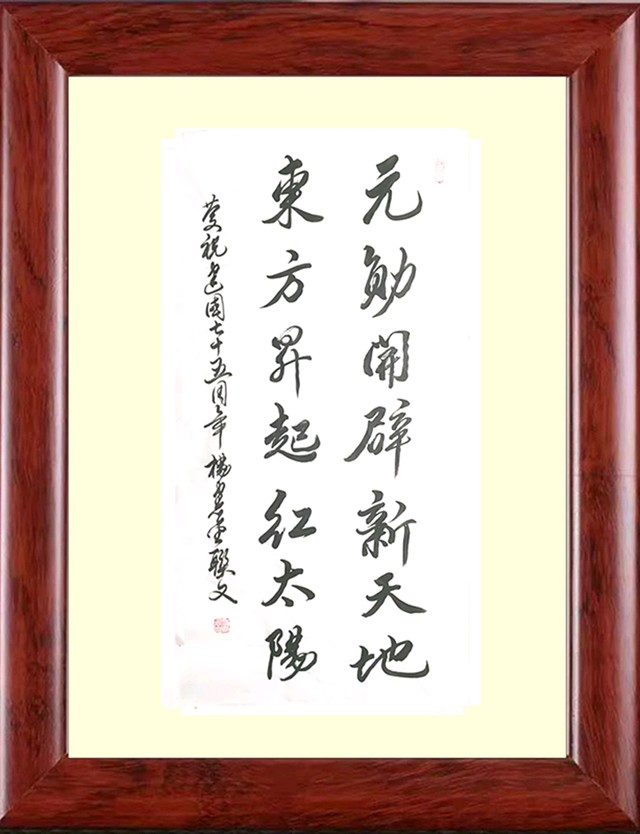 元勋開辟新天地
東方昇起紅太陽
慶祝建國七十五周年 楊 聯文